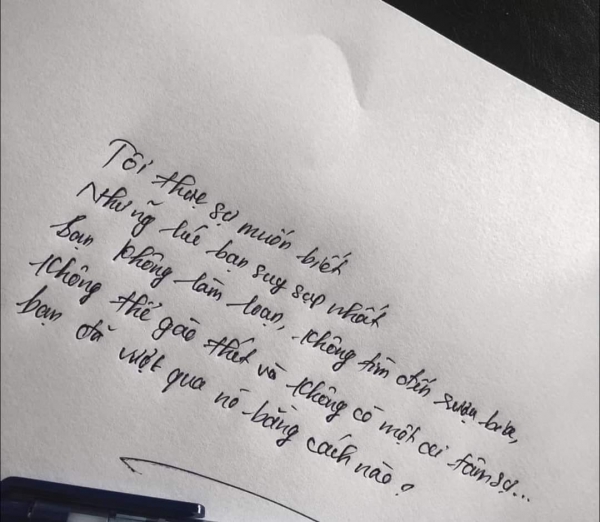 Tôi thực sự muốn biết
Những lúc bạn suy sụp nhất
bạn không làm loạn, không tìm đến rượu bia,
không thể gào thét và không có một ai tâm sự...
bạn đã vượt qua nó bằng cách nào?